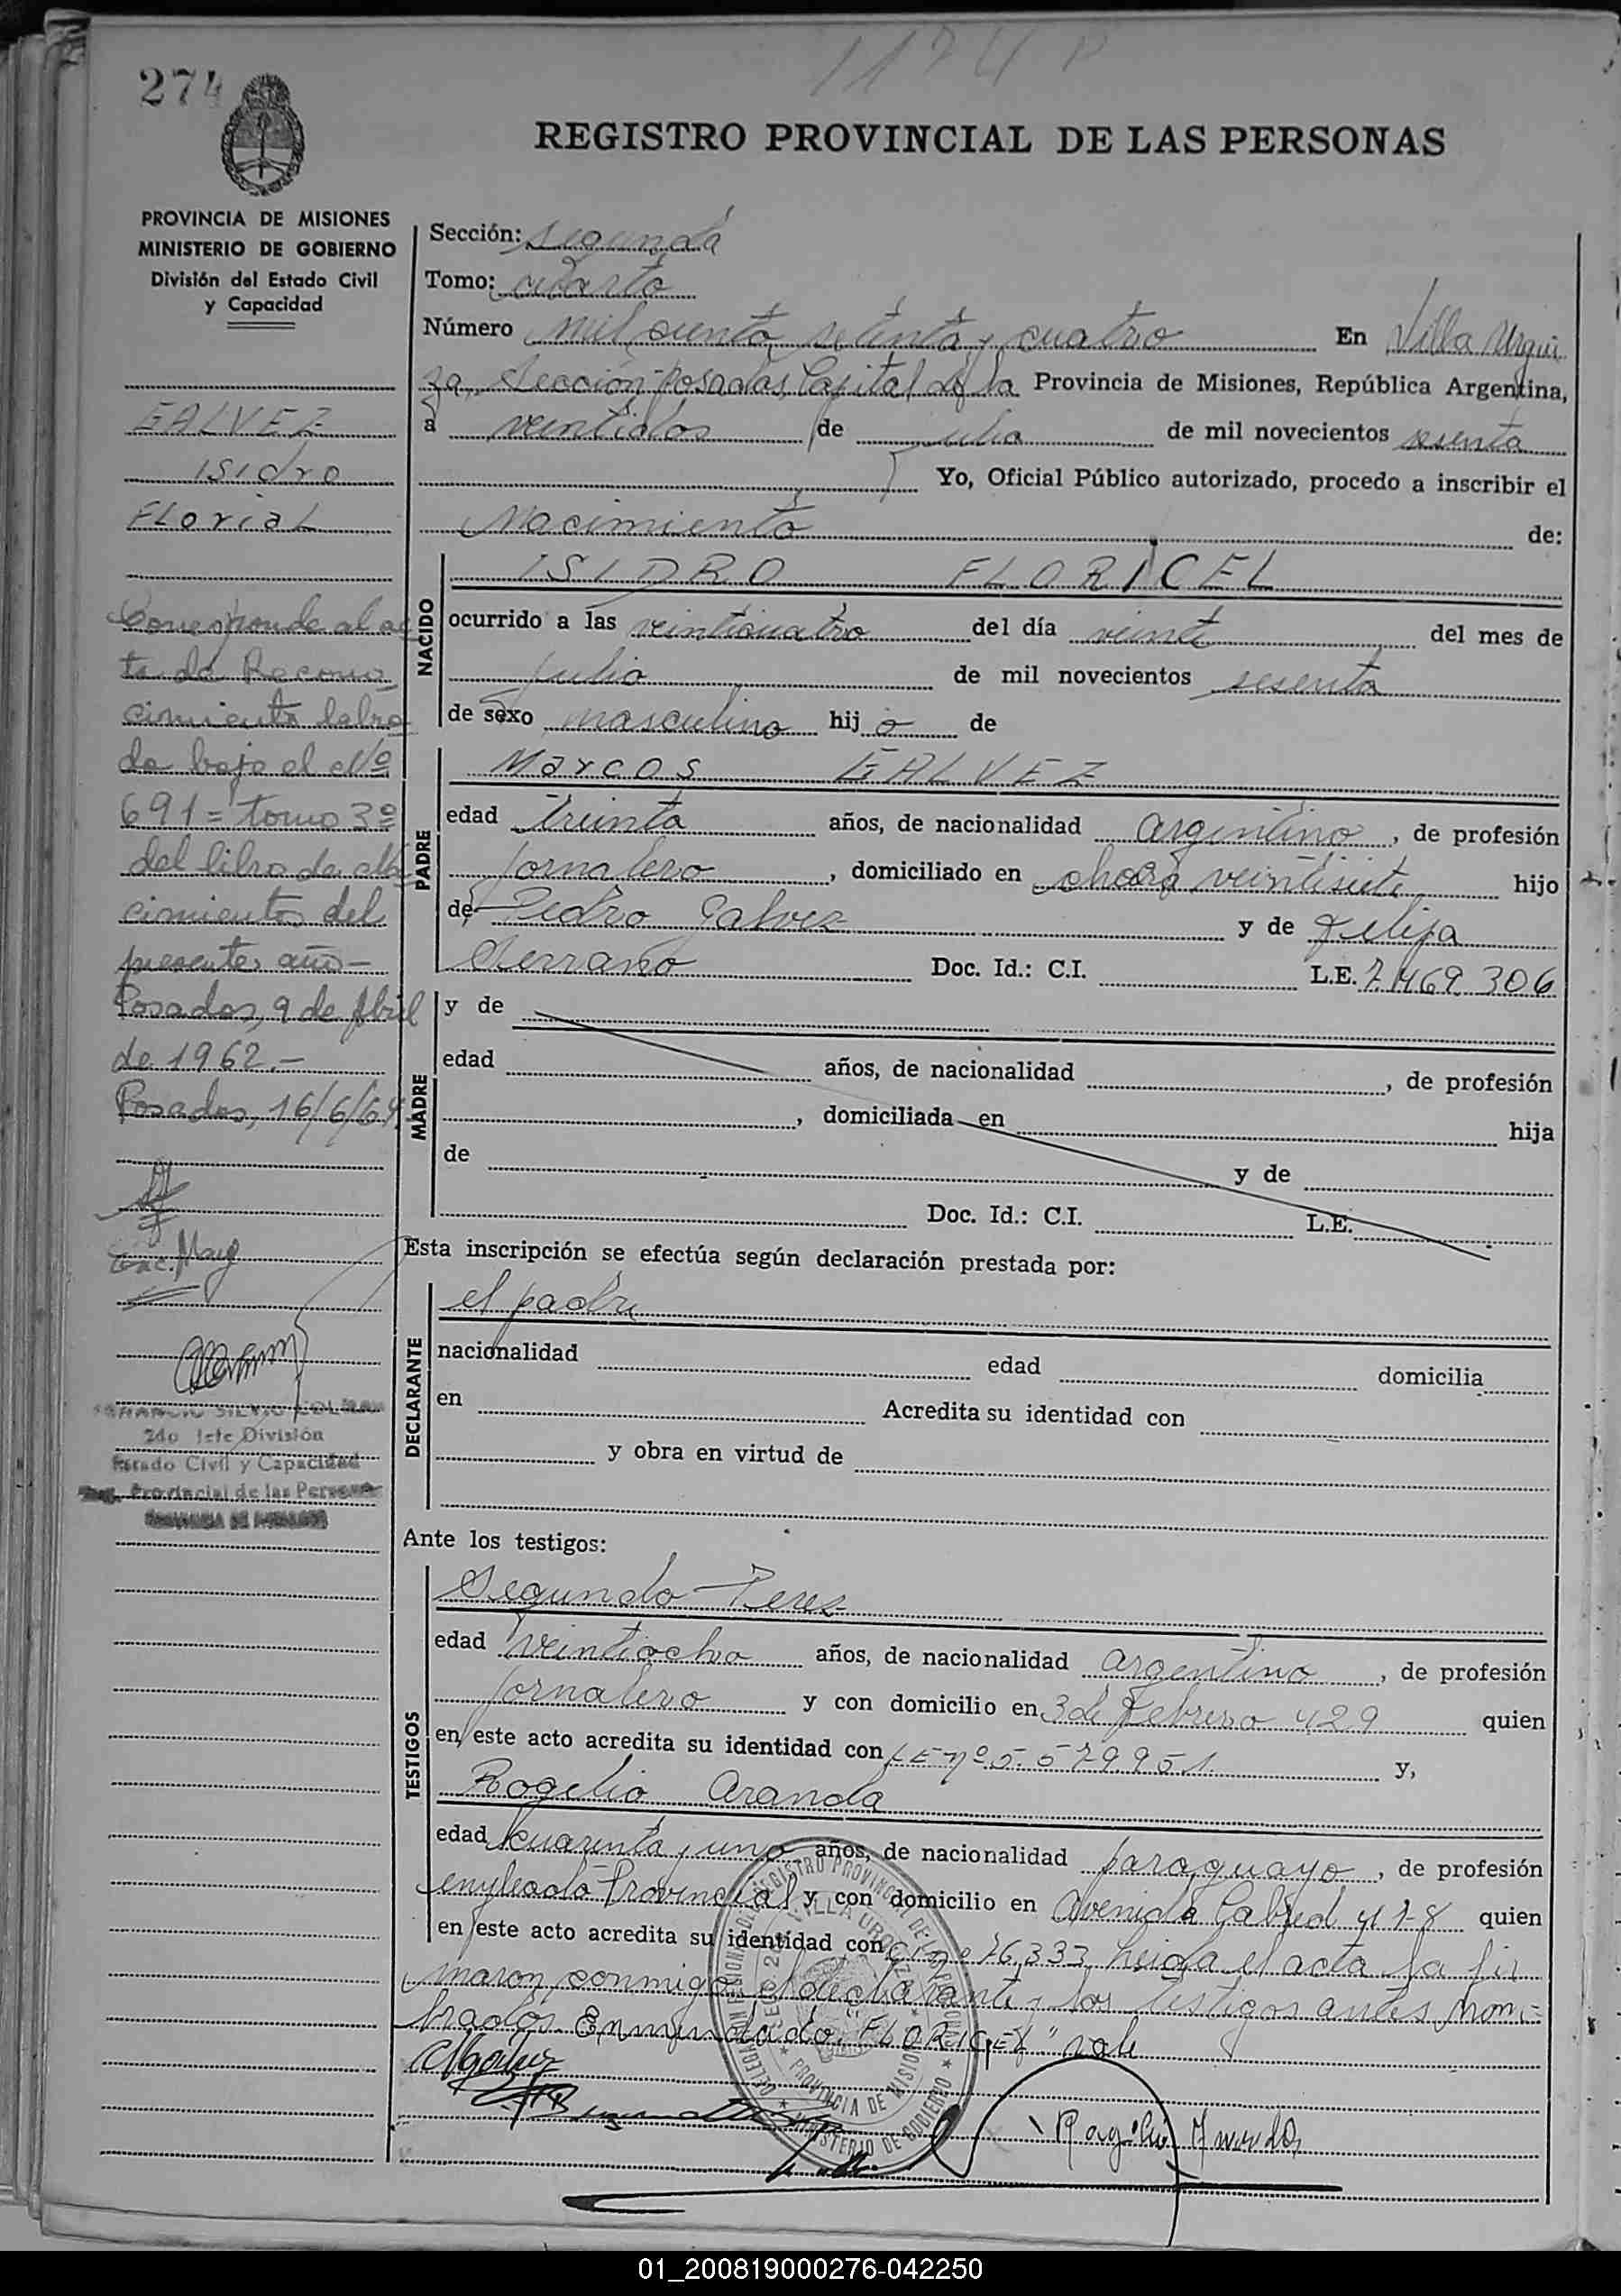 1174
274
REGISTRO PROVINCIAL DE LAS PERSONAS
PROVINCIA DE MISIONES
MINISTERIO DE GOBIERNO
División del Estado Civil
y Capacidad
GALVEZ
Isidro
Florial
Corresponde al ac
ta de Recono
cimiento labra
da bajo el Nº
691= tomo 3º
del libro de Na
cimientos del
presente año-
Posadas, 9 de Abril
de 1962.-
Posadas, 16/6/69
2do Jefe División
Estado Civil y Capacidad
Reg. Provincial de las Personas
PROVINCIA DE MISIONES
Sección: segunda
Tomo: cuarto
Número mil ciento setenta y cuatro En Villa Urqui
za, Sección Posadas, Capital de la Provincia de Misiones, República Argentina,
a veintidos de julio de mil novecientos sesenta
Yo, Oficial Público autorizado, procedo a inscribir el
Nacimiento de:
NACIDO
ISIDRO FLORICEL
ocurrido a las veinticuatro del día veinte del mes de
julio de mil novecientos sesenta
de sexo masculino hij o de
PADRE
Marcos GALVEZ
edad treinta años, de nacionalidad argentino, de profesión
jornalero, domiciliado en chacra veintisiete hijo
de Pedro Galvez y de Felipa
Serrano Doc. Id.: C.I. L.E. 7.469.306
MADRE
y de
edad años, de nacionalidad , de profesión
, domiciliada en hija
de y de
Doc. Id.: C.I. L.E.
Esta inscripción se efectúa según declaración prestada por:
DECLARANTE
el padre
nacionalidad edad domicilia
en Acredita su identidad con
y obra en virtud de
Ante los testigos:
TESTIGOS
Segundo Perez
edad veintiocho años, de nacionalidad argentino, de profesión
jornalero y con domicilio en 3 de Febrero 429 quien
en este acto acredita su identidad con LE nº 5.579951 y,
Rogelio Aranda
edad cuarenta y uno años, de nacionalidad paraguayo, de profesión
empleado Provincial y con domicilio en Avenida Cabred 478 quien
en este acto acredita su identidad con C.I. nº 76.333 Leida el acta la fir
maron conmigo el declarante y los testigos antes nom=
brados. Enmendado "FLORICEL" vale
Rogelio Aranda
REGISTRO PROVINCIAL DE LAS PERSONAS
VILLA URQUIZA
PROVINCIA DE MISIONES
MINISTERIO DE GOBIERNO
01_200819000276-042250